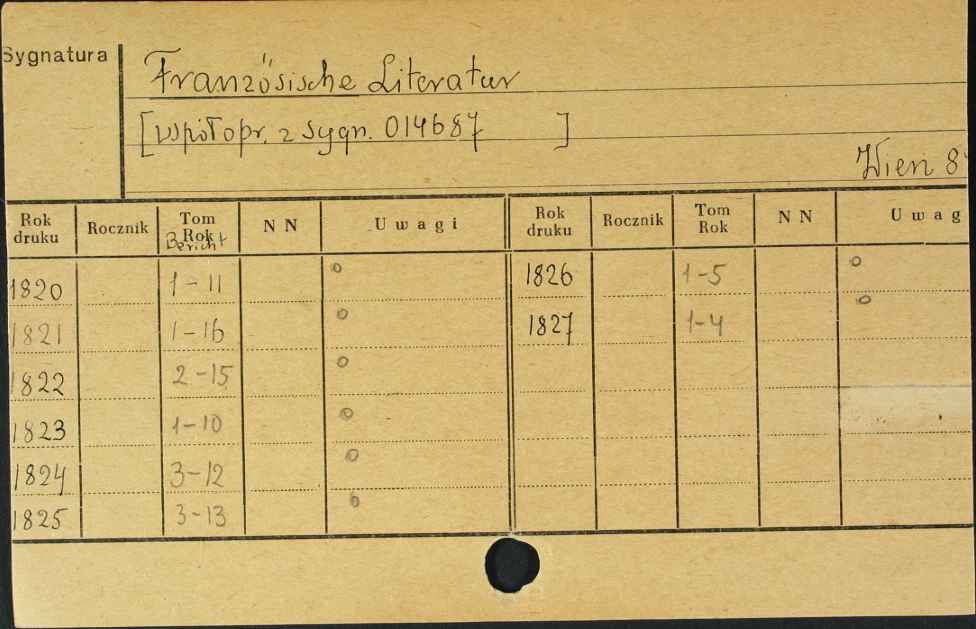 Sygnatura
Französische Literatur
[współopr. z sygn. 014687 ]
Wien 8
Rok druku Rocznik Tom Rok Bericht N N Uwagi Rok druku Rocznik Tom Rok N N Uwag
1820 1-11 o 1826 1-5 o
1821 1-16 o 1827 1-4 o
1822 2-15 o
1823 1-10 o
1824 3-12 o
1825 3-13 o